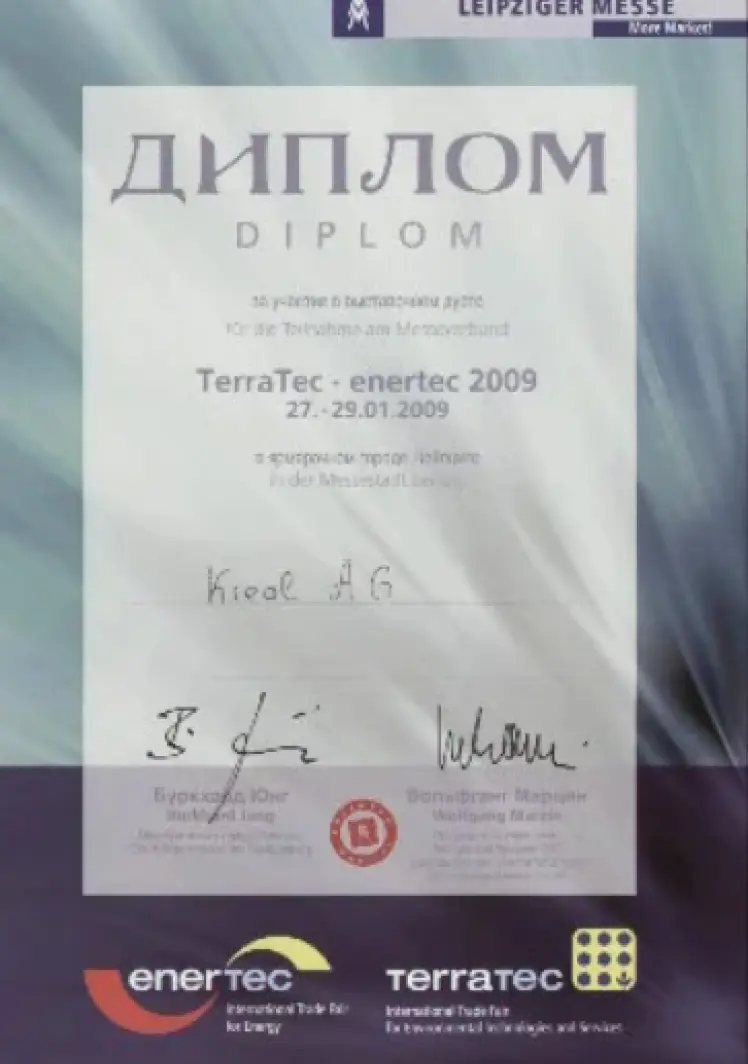 LEIPZIGER MESSE
More Market!
ДИПЛОМ
DIPLOM
за участие в выставочном дуэте
für die Teilnahme am Messeverbund
TerraTec · enertec 2009
27.-29.01.2009
в ярмарочном городе Лейпциге
in der Messestadt Leipzig
AG
Буркхард Юнг
Burkhard Jung
Вольфганг Марцин
Wolfgang Marzin
enertec
International Trade Fair
for Energy
Terratec
International Trade Fair
for Environmental Technologies and Services